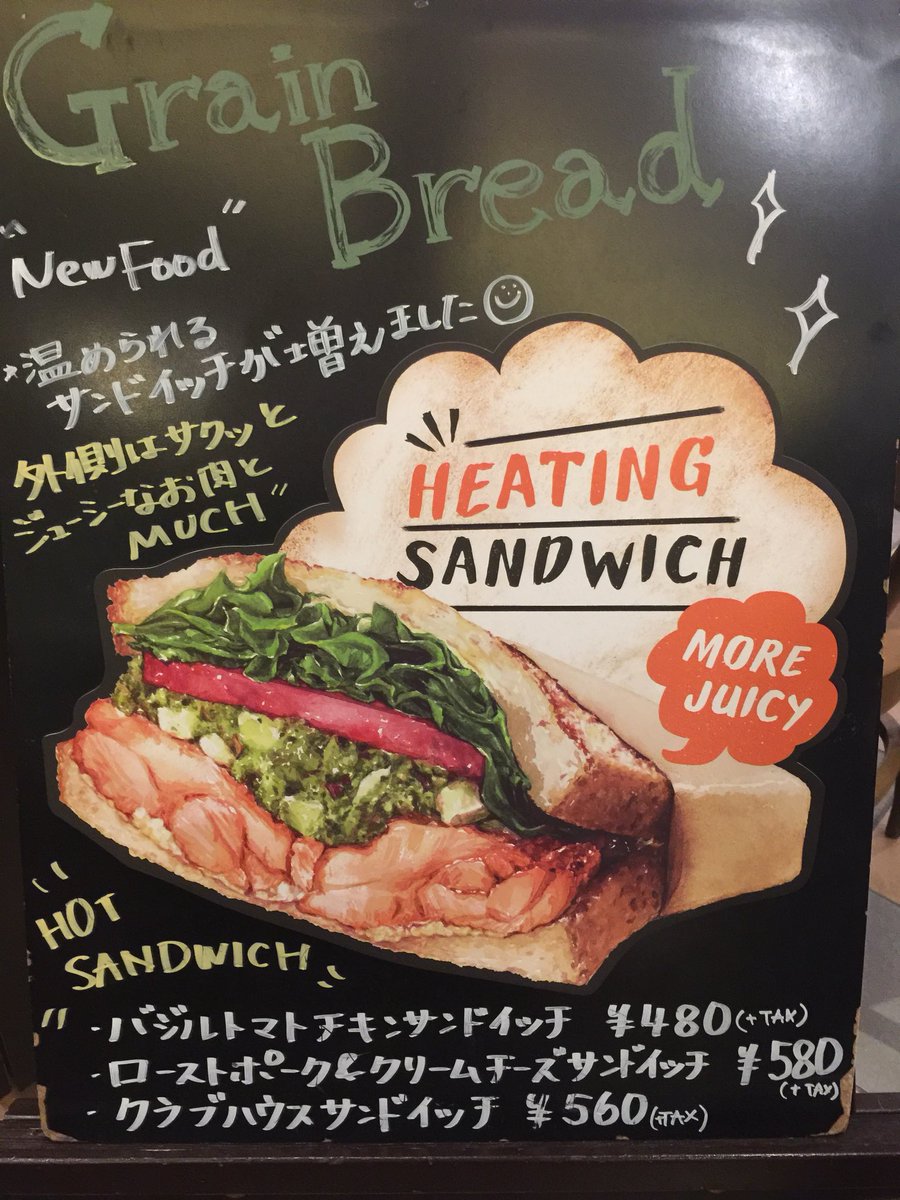 Grain
Bread
"New Food"
*温められる
サンドイッチが増えました☺
外側はサクッと
ジューシーなお肉と
MUCH"
HEATING
SANDWICH
MORE
JUICY
HOT
SANDWICH
・バジルトマトチキンサンドイッチ ¥480(+TAX)
・ローストポーク&クリームチーズサンドイッチ ¥580
(+TAX)
・クラブハウスサンドイッチ ¥560(+TAX)